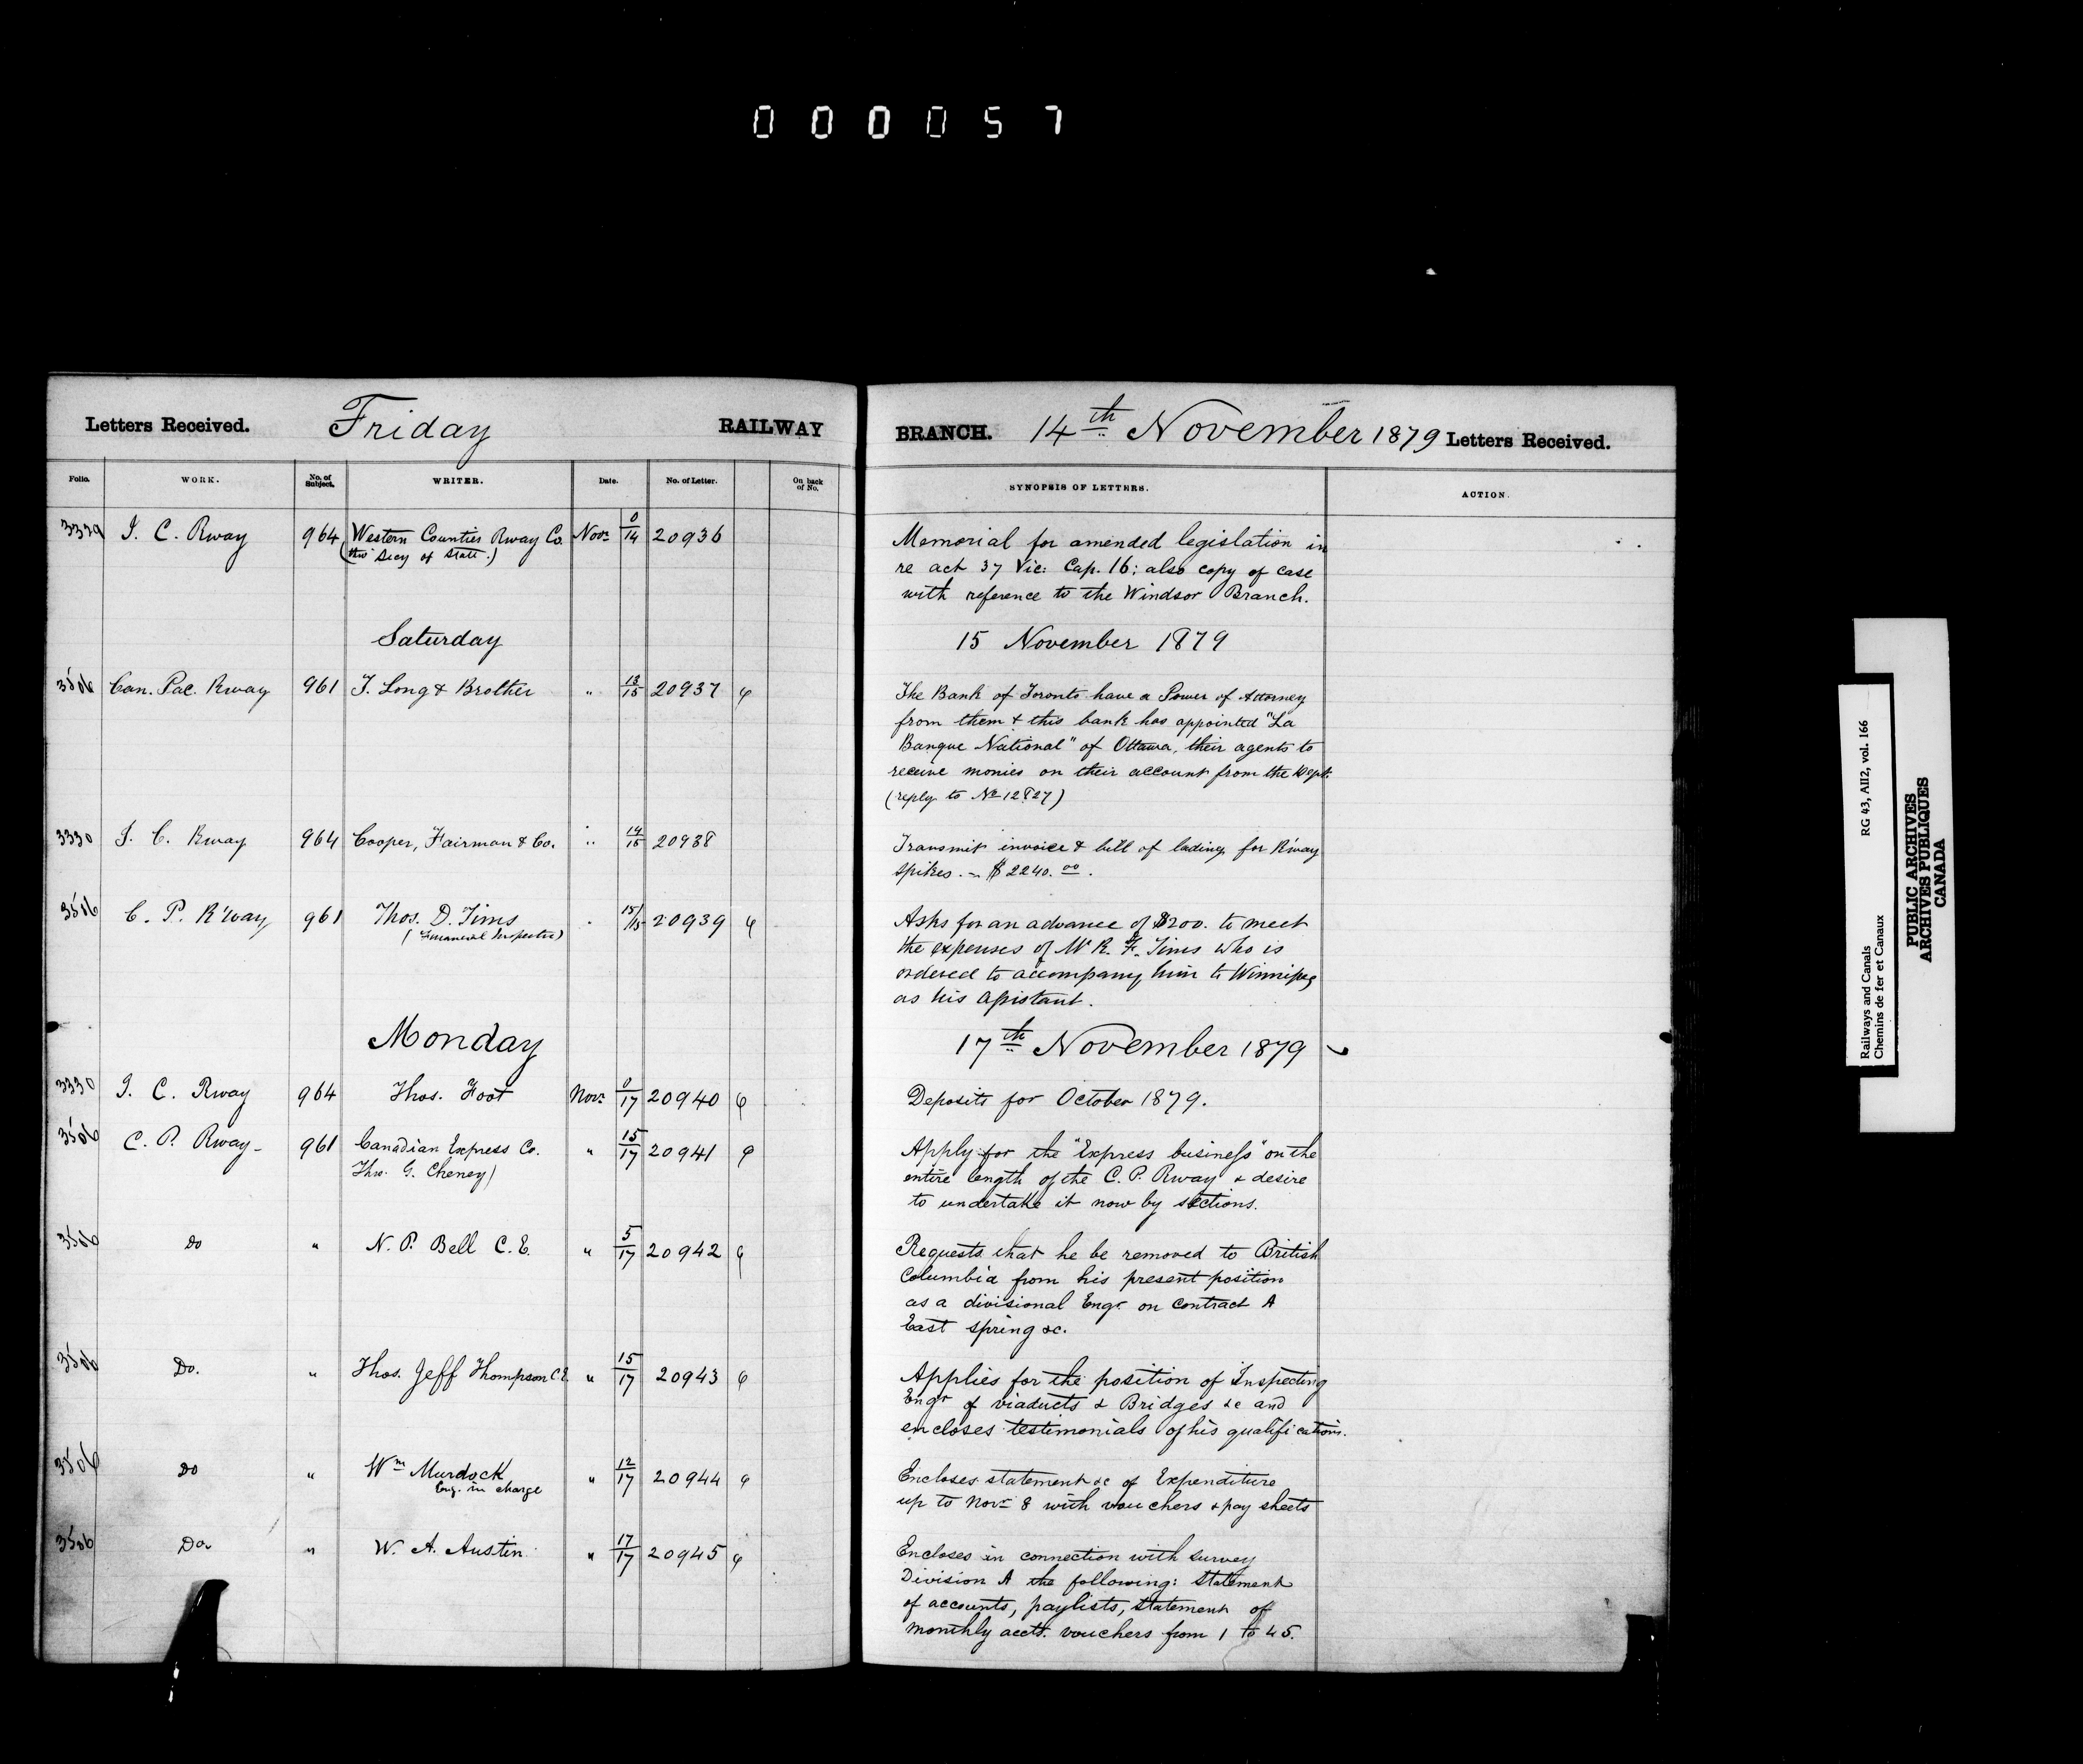 000057
Letters Received. Friday RAILWAY
Folio. WORK. No. of Subject. WRITER. Date. No. of Letter. On back of No.
3329 I. C. Rway 964 Western Counties Rway Co. Novr 0/14 20936
(thro' Secy of State.)
Saturday
3506 Can. Pac. Rway 961 T. Long & Brother " 13/15 20937
3330 I. C. Rway 964 Cooper, Fairman & Co. " 14/15 20938
3506 C. P. R'way 961 Thos. D. Tims 15/15 20939
(Financial Inspector)
Monday
3330 I. C. Rway 964 Thos. Foot Novr 0/17 20940
3506 C. P. Rway - 961 Canadian Express Co. " 15/17 20941
Thro. G. Cheney)
3506 Do " N. P. Bell C. E. " 5/17 20942
3506 Do. " Thos. Jeff Thompson C.E. " 15/17 20943
3506 Do " Wm Murdock " 12/17 20944
Eng. in charge
3506 Do. " W. A. Austin " 17/17 20945
BRANCH. 14th November 1879 Letters Received.
SYNOPSIS OF LETTERS. ACTION.
Memorial for amended legislation in
re act 37 Vic: Cap. 16: also copy of case
with reference to the Windsor Branch.
15 November 1879
The Bank of Toronto have a Power of Attorney
from them & this bank has appointed "La
Banque National" of Ottawa, their agents to
receive monies on their account from the Dept.
(reply to No 12827)
Transmit invoice & bill of lading for R'way
spikes. - $2240.00.
Asks for an advance of $200. to meet
the expenses of Mr R. F. Tims who is
ordered to accompany him to Winnipeg
as his assistant.
17th November 1879
Deposits for October 1879.
Apply for the "Express business" on the
entire length of the C. P. Rway & desire
to undertake it now by sections.
Requests that he be removed to British
Columbia from his present position
as a divisional Engr on contract A
East spring &c.
Applies for the position of Inspecting
Engr of viaducts & Bridges &c and
encloses testimonials of his qualifications.
Encloses statement &c of Expenditure
up to Novr 8 with vouchers & pay sheets
Encloses in connection with survey
Division A the following: Statement
of accounts, paylists, statement of
monthly accts. vouchers from 1 to 45.
Railways and Canals RG 43, AII2, vol. 166
Chemins de fer et Canaux
PUBLIC ARCHIVES
ARCHIVES PUBLIQUES
CANADA